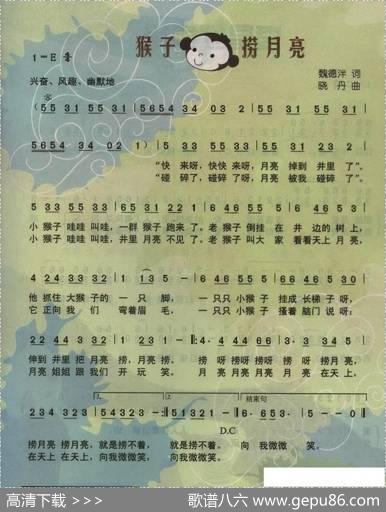 猴子捞月亮
1=E
兴奋、风趣、幽默地
魏德泮 词
晓丹 曲
(55 31 55 31 | 5654 34 03 2 | 55 31 55 31 |
5654 34 02 1) | 55 33 55 33 | 55 31 55 31 |
“快来呀，快快来呀，月亮 掉到 井里 了”。
“碰碎了，碰碎了呀，月亮 被我 碰碎 了”。
5 33 55 33 | 65 31 22 1 | 6 46 55 5 | 6 46 53 4 |
小 猴子 哇哇 叫哇，一群 猴子 跑来 了。老 猴子 倒挂 在 井 边的 树 上，
小 猴子 哇哇 叫哇，井里 月亮 不见 了。老 猴子 叫大 家 看看天上 月 亮，
他 抓住 大猴 子的 一 只 脚， 一只只 小猴子 挂成 长梯 子 呀，
它 正向 我 们 弯着 眉 毛， 一只只 小猴子 搔着 脑门 说 呀：
伸到 井里 把 月亮 捞，月亮 捞。 捞 呀 捞呀 捞呀 捞 呀 捞月 亮，
月亮 姐姐 跟 我们 开 玩 笑。 月亮 月亮 月 亮 在天 上，
1. 2. 结束句
234 323 | 54323 - :| 51321 - :| 6·653 | 5 - - 0 |
D.C
捞月亮 捞月亮，就是捞不着， 就是捞不着。 向 我微微 笑。
在天上 在天上，向我微微笑， 向我微微笑。
高清下载 >>>
歌谱八六 www.gepu86.com